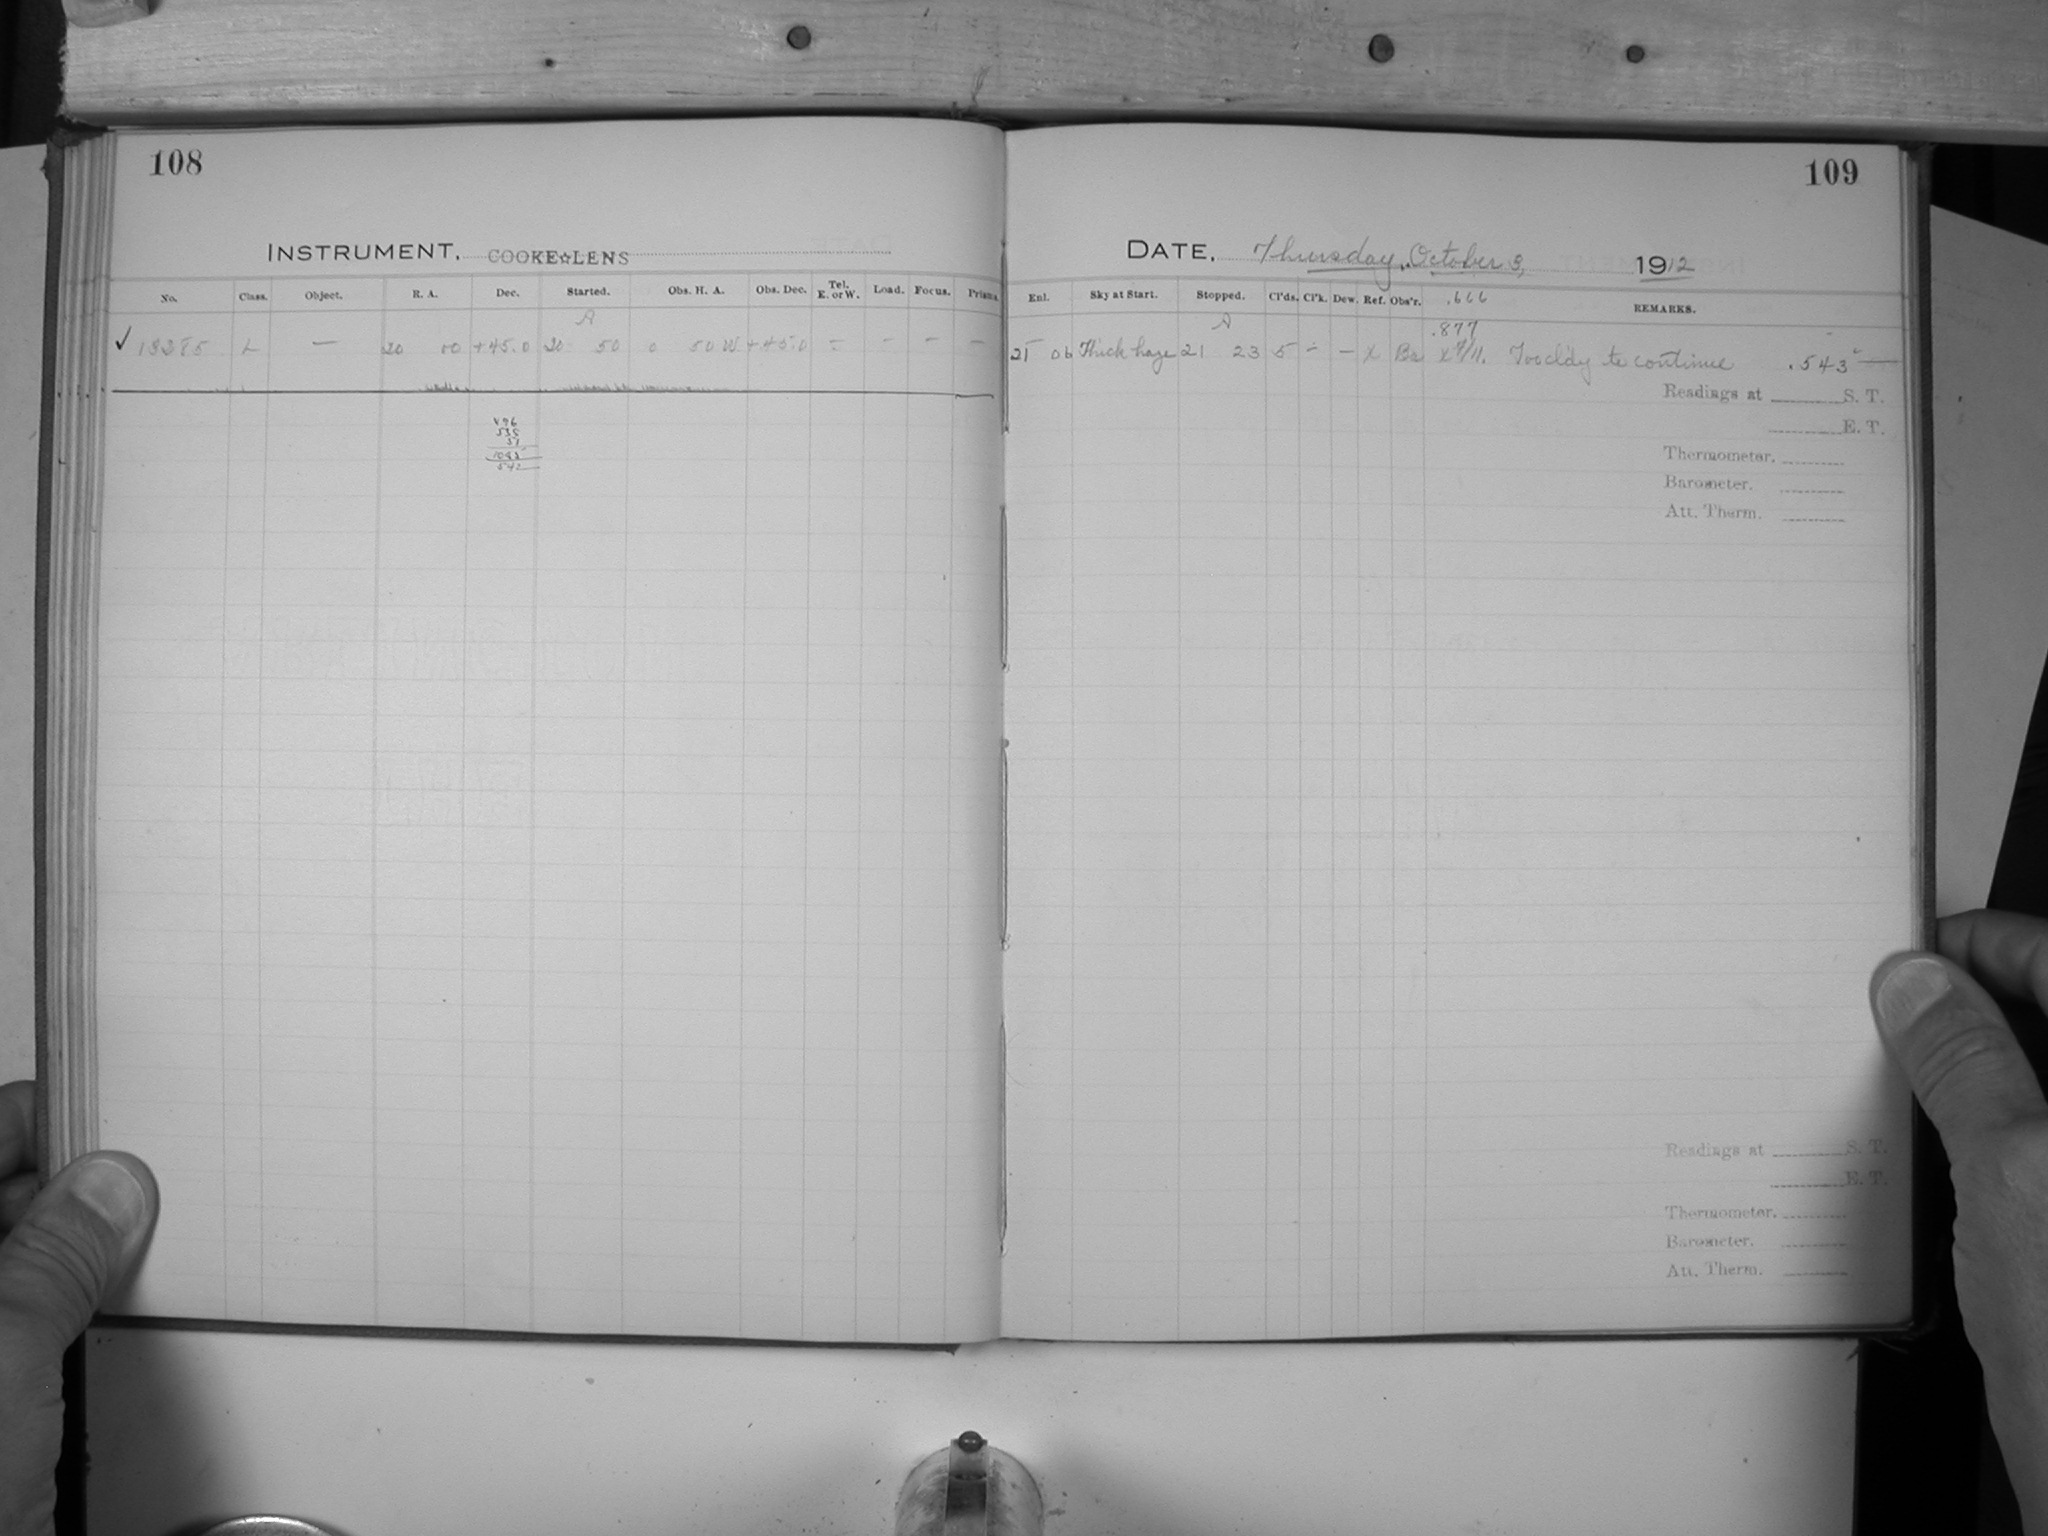 108
INSTRUMENT, COOKE☆LENS
No. Class. Object. R. A. Dec. Started. Obs. H. A. Obs. Dec. Tel. E. or W. Load. Focus. Prisms
A
✓ L — 20 00 +45.0 20 50 0 50 W +45.0 – – – –
535
51
542
109
DATE, Thursday, October 3, 1912
Enl. Sky at Start. Stopped. Cl'ds. Cl'k. Dew. Ref. Obs'r. .666 REMARKS.
A .877
21 06 Thick haze 21 23 5 – – X Ba Too cldy to continue .543
Readings at S. T.
E. T.
Thermometer.
Barometer.
Att. Therm.
Readings at S. T.
E. T.
Thermometer.
Barometer.
Att. Therm.